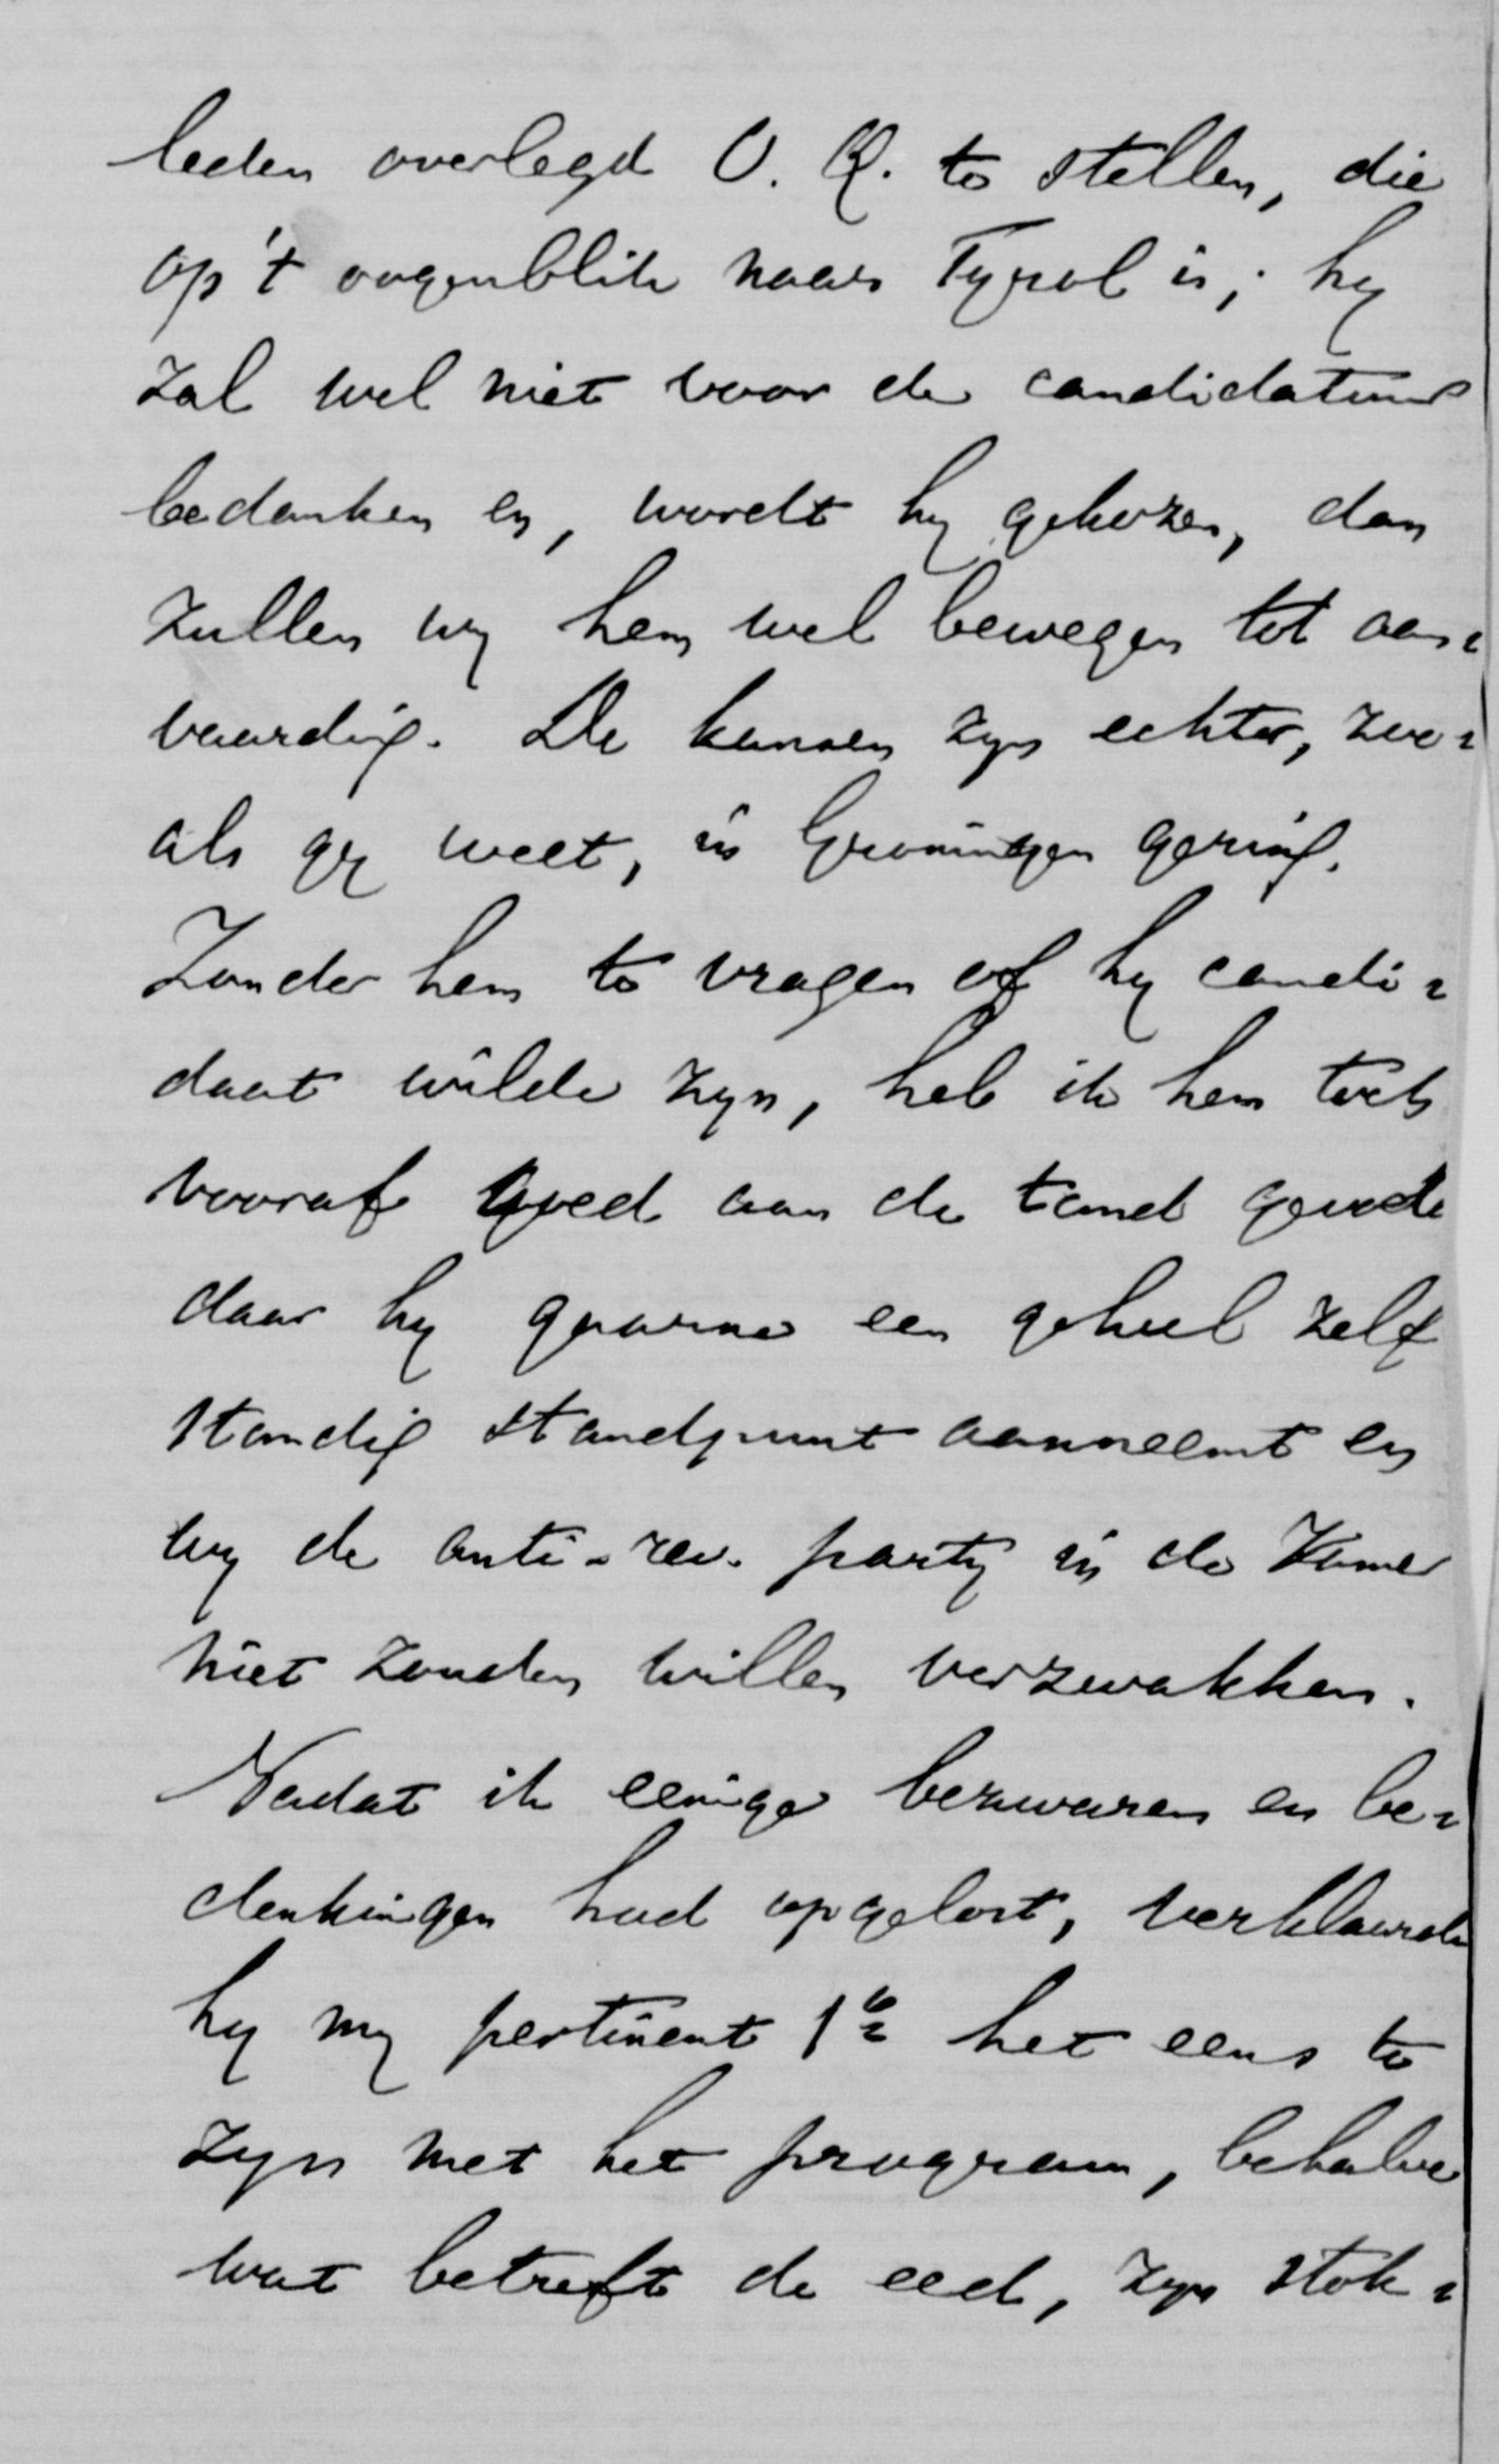 leden overlegd O. Q. te stellen, die
op 't oogenblik naar Tyrol is; hy
zal wel niet voor de candidatuur
bedanken en, wordt hy gekozen, dan
zullen wy hem wel bewegen tot aan-
vaarding. De kansen zyn echter, zoo-
als gy weet, in Groningen gering.
Zonder hem te vragen of hy candi-
daat wilde zyn, heb ik hem toch
vooraf goed aan de tand gevoeld
daar hy gaarne een geheel zelf
standig standpunt aanneemt en
wy de anti-rev. party in de Kamer
niet zouden willen verzwakken.
Nadat ik eenige bezwaren en be-
denkingen had opgelost, verklaarde
hy my pertinent 1o het eens te
zyn met het program, behalve
wat betreft de eed, zyn stok-